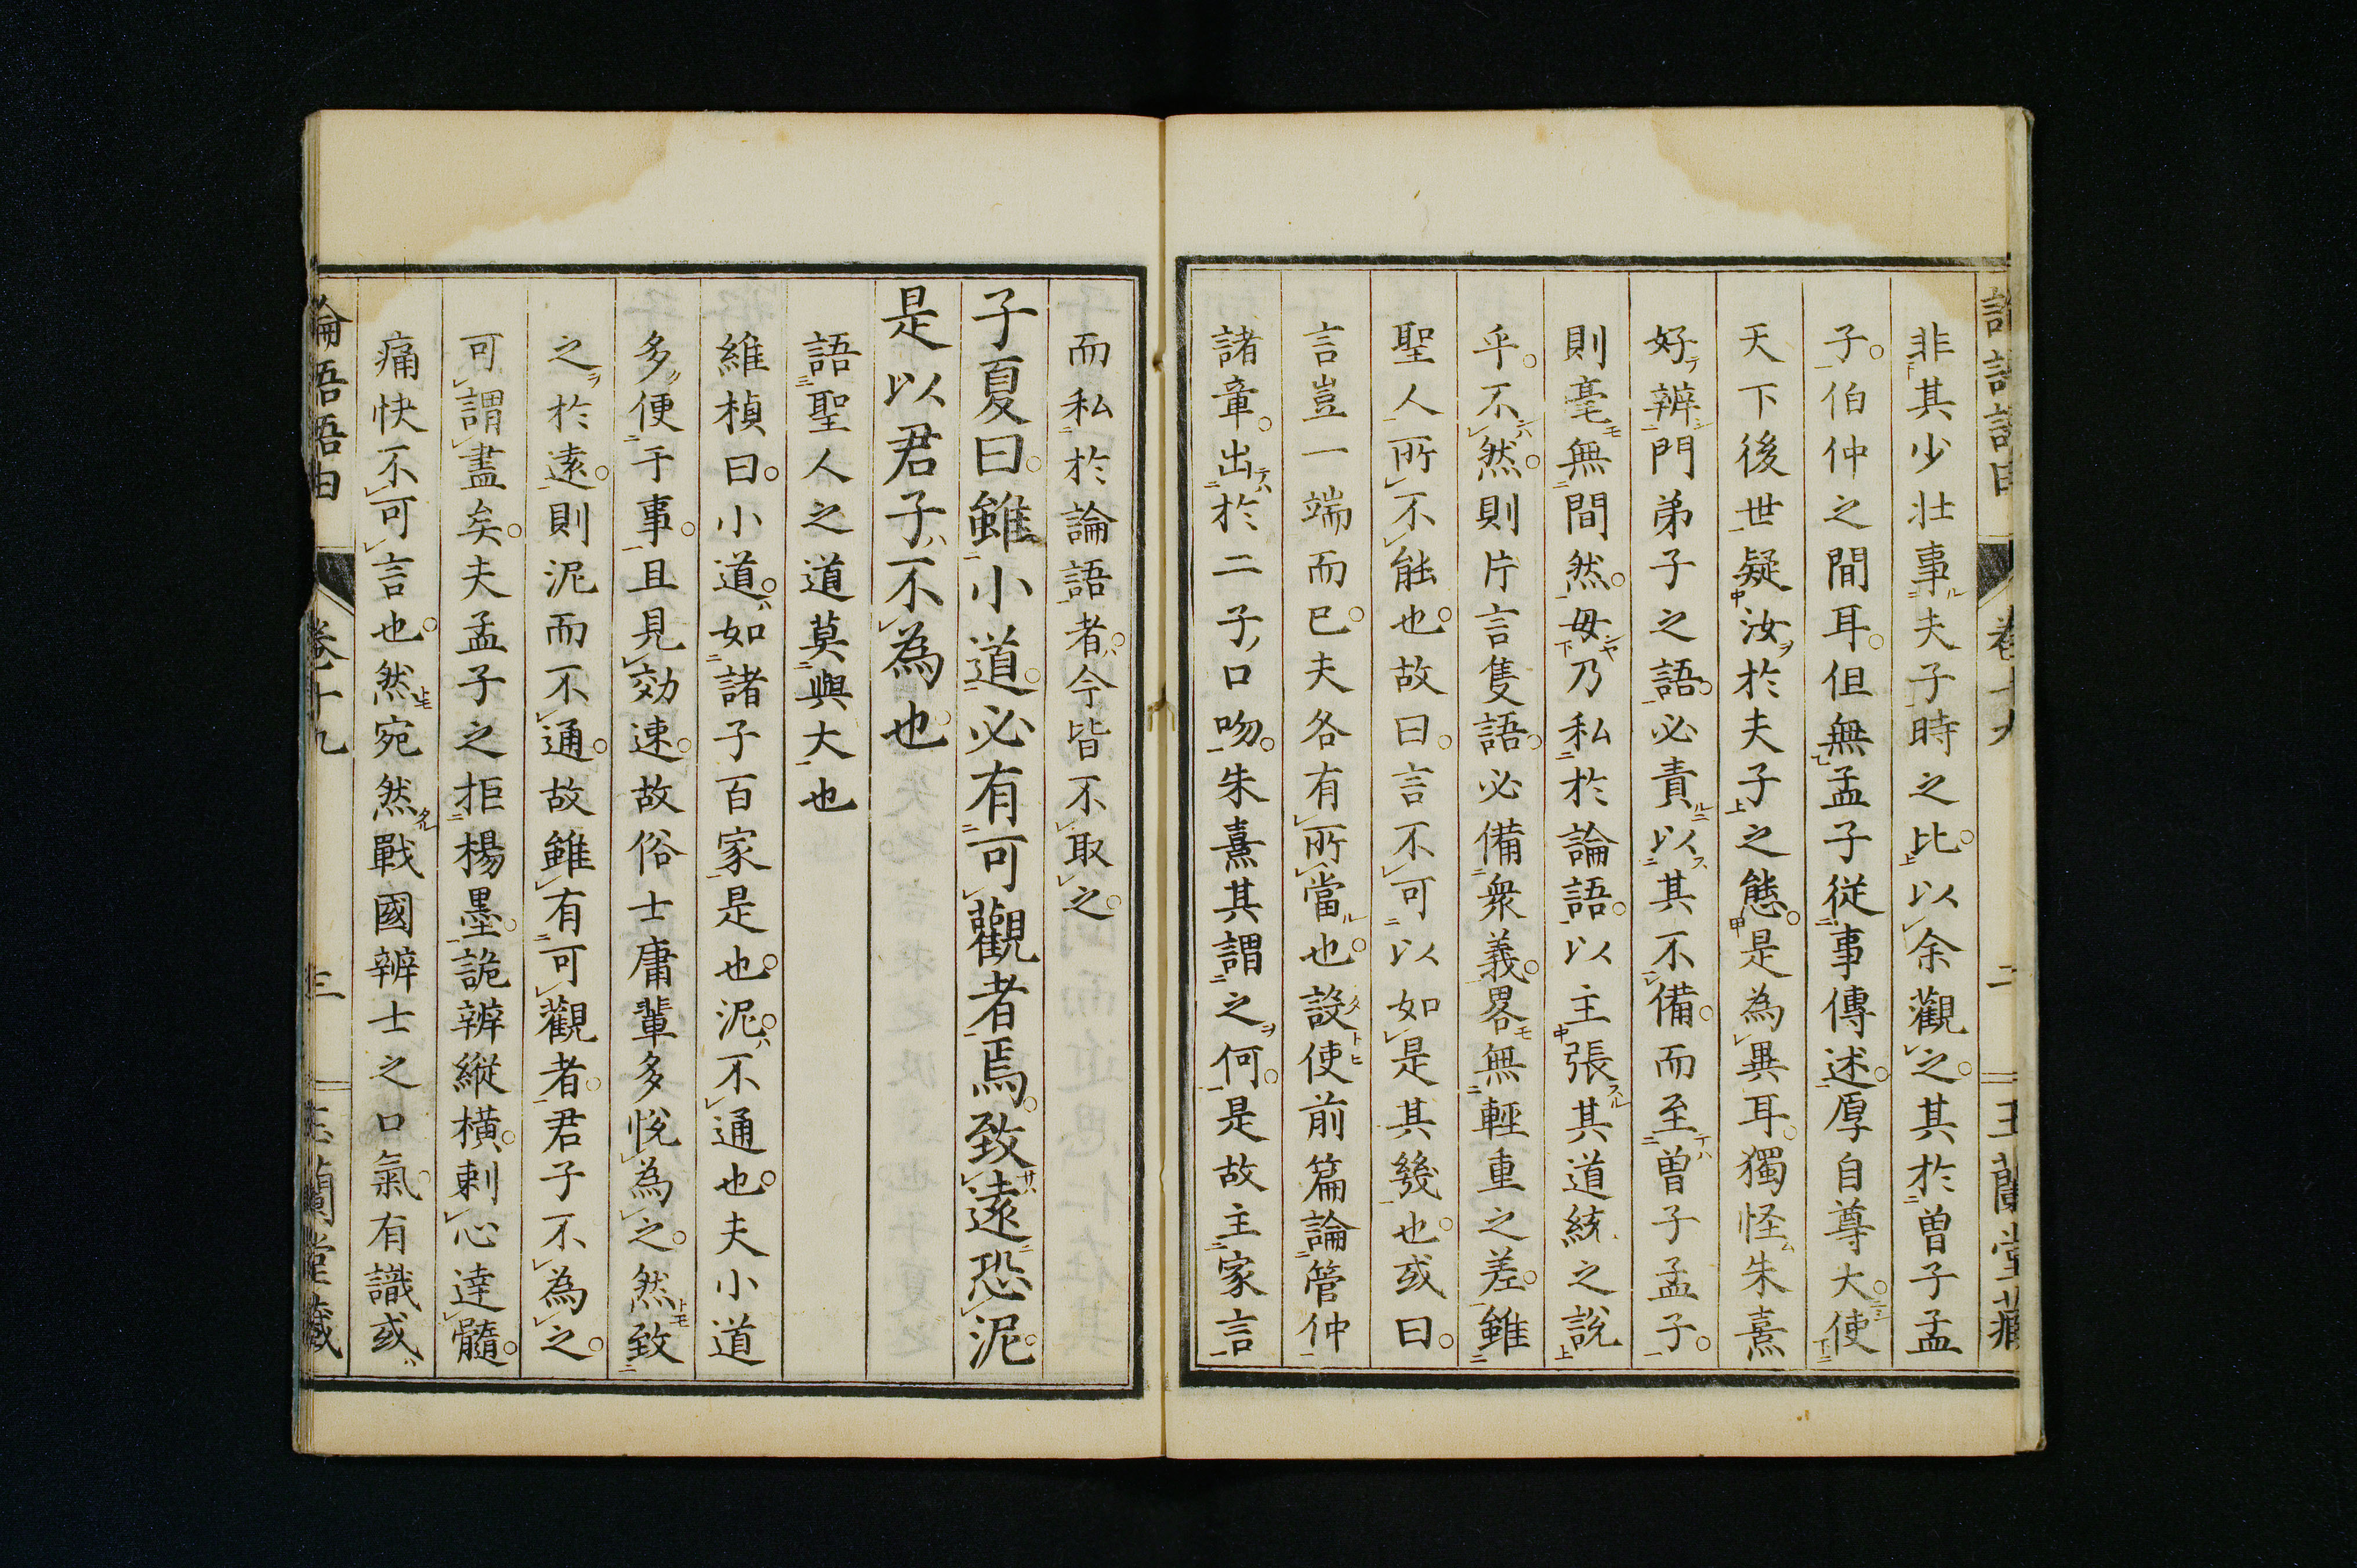 非其少壯事夫子時之比以余觀之其於曽子孟
子伯仲之間耳但無孟子従事傳述厚自尊大使
天下後世疑汝於夫子之態是為異耳獨怪朱熹
好辨門弟子之語必責以其不備而至曽子孟子
則毫無間然毋乃私於論語以主張其道統之說
乎不然則片言隻語必備衆義畧無輕重之差雖
聖人所不能也故曰言不可以如是其幾也或曰
言豈一端而已夫各有所當也設使前篇論管仲
諸章出於二子口吻朱熹其謂之何是故主家言
而私於論語者今皆不取之
子夏曰雖小道必有可觀者焉致遠恐泥
是以君子不為也
語聖人之道莫與大也
維楨曰小道如諸子百家是也泥不通也夫小道
多便于事且見効速故俗士庸輩多悅為之然致
之於遠則泥而不通故雖有可觀者君子不為之
可謂盡矣夫孟子之拒楊墨詭辨縦横剌心達髓
痛快不可言也然宛然戰國辨士之口氣有識或
論語語由 卷十九 三 玉蘭堂藏